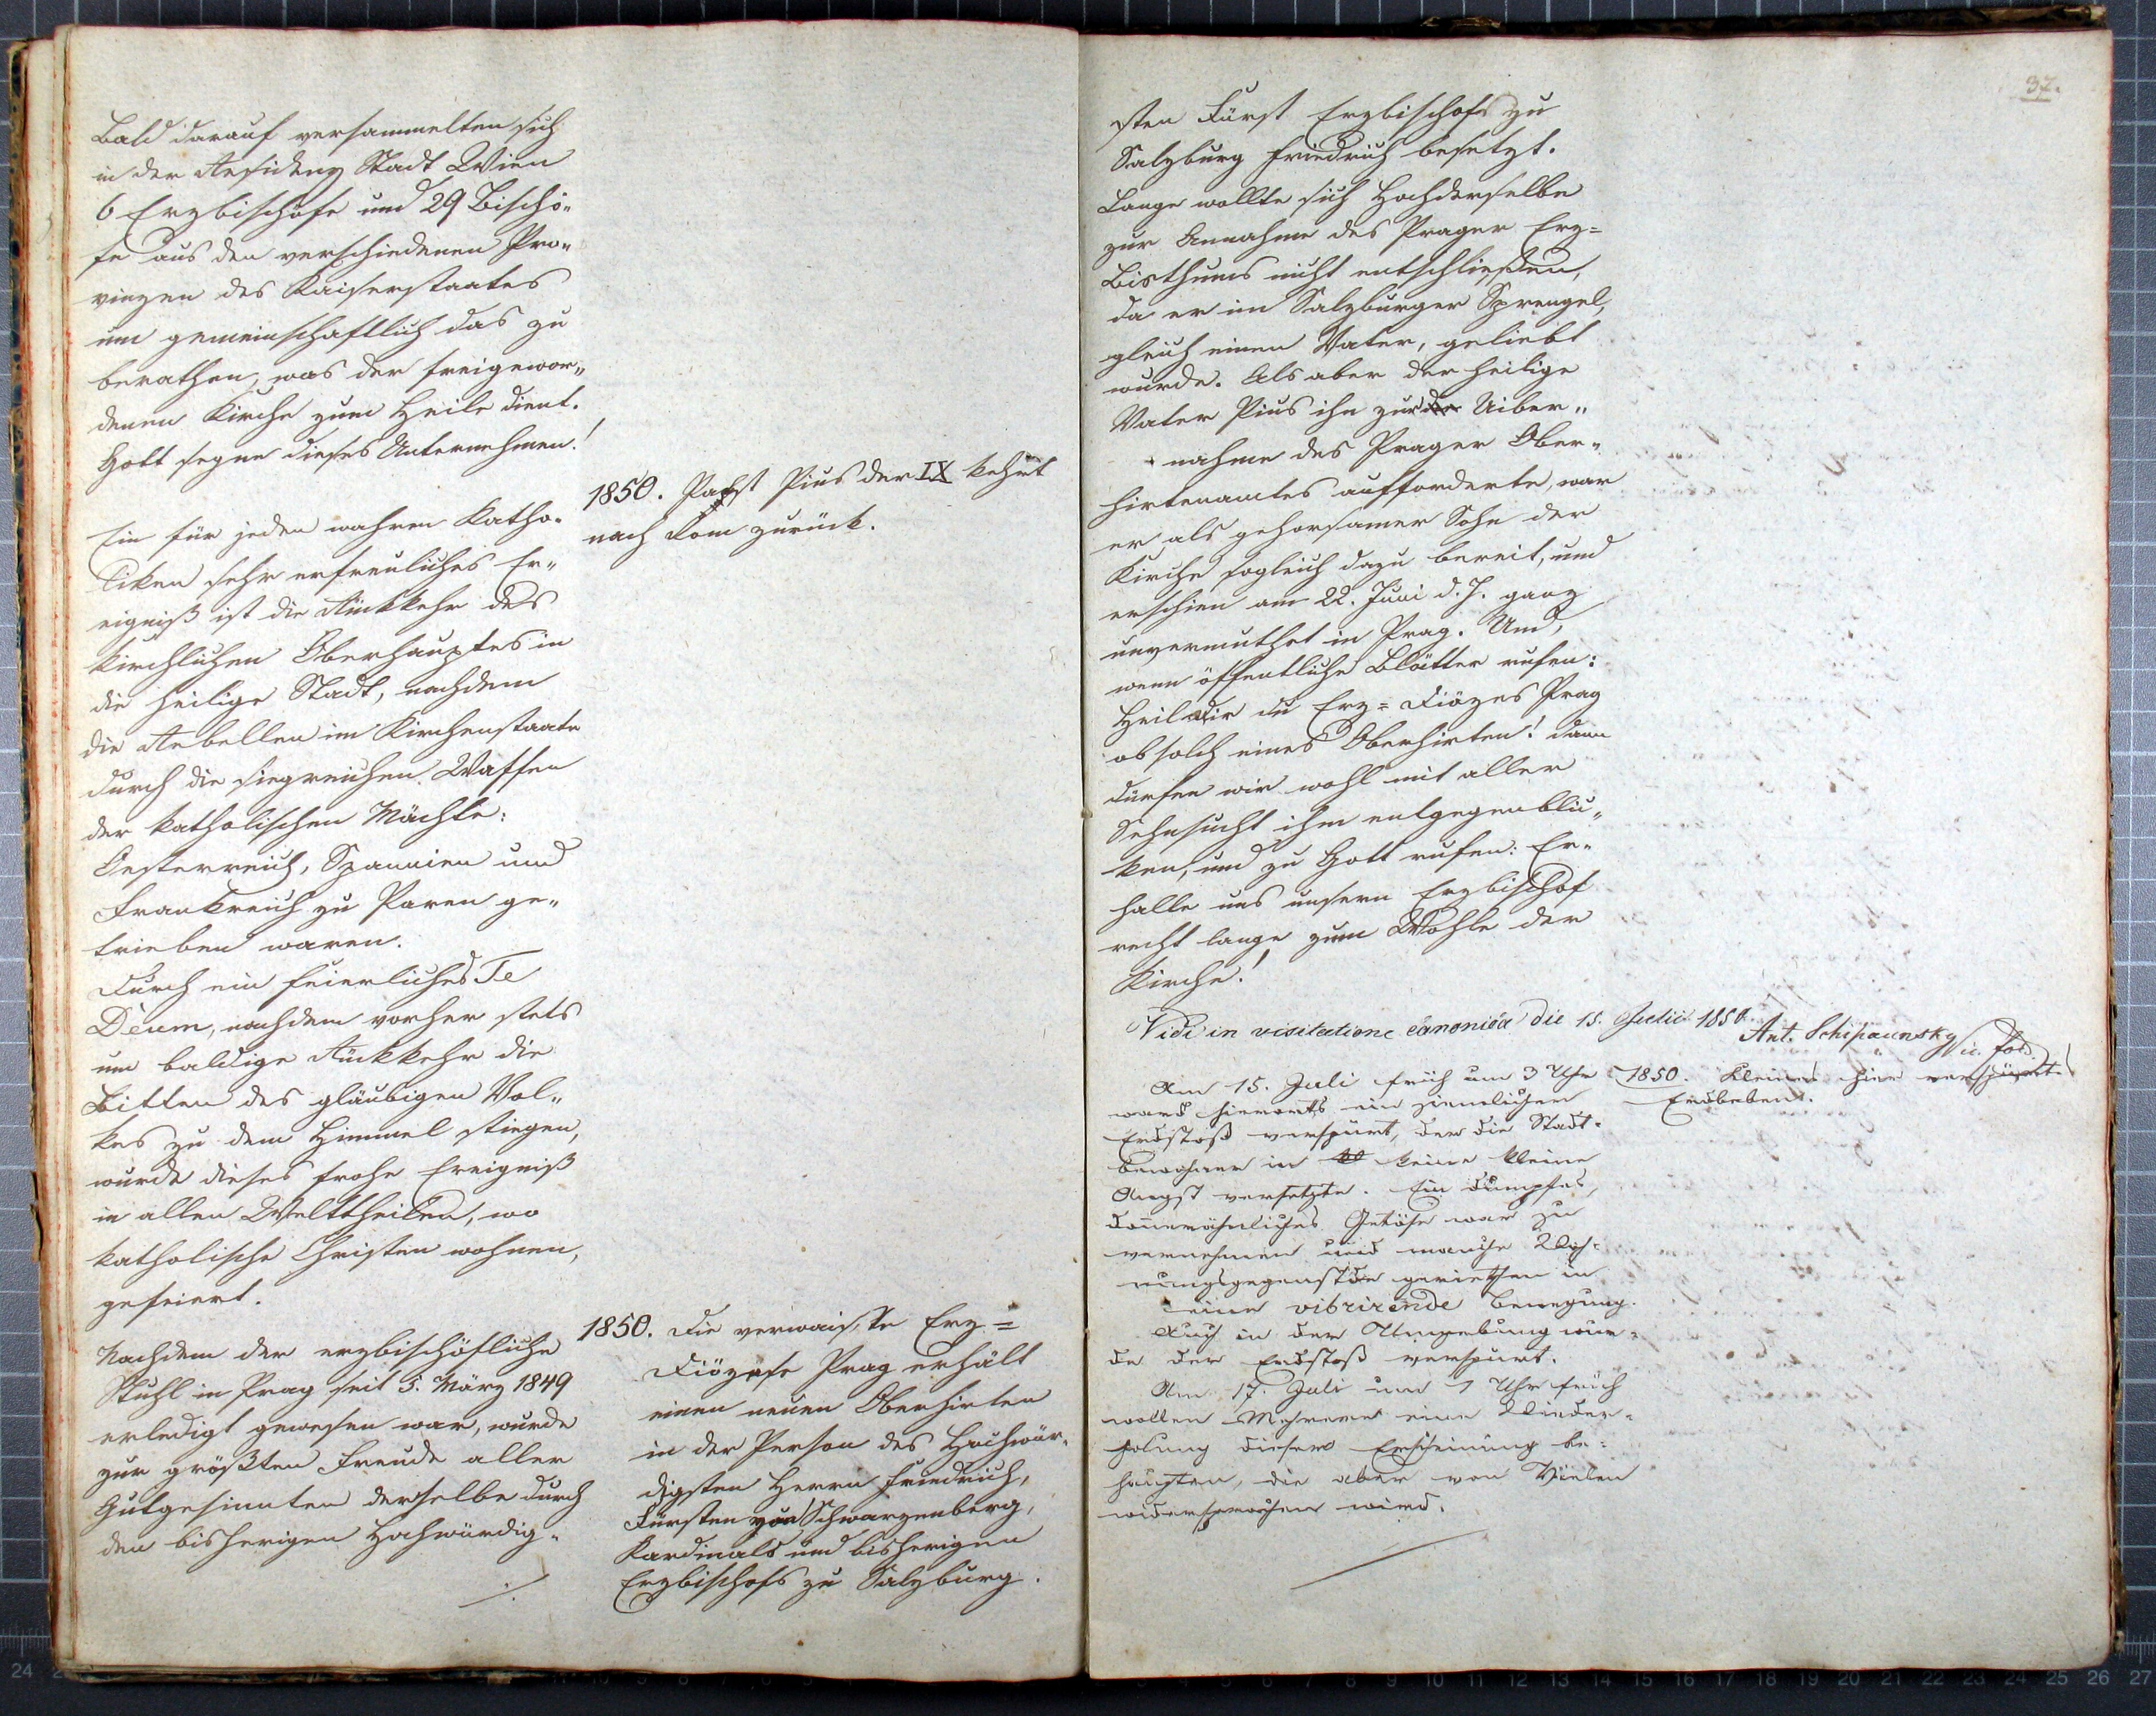 Bald darauf versammelten sich
in der Residenz Stadt Wien
6 Erzbischöfe und 29 Bischö„
fe aus den verschiedenen Pro„
vinzen des Kaiserstaates
um gemeinschaftlich das zu
berathen, was der freigewor„
denen Kirche zum Heile dient.
Gott segne dieses Unternehmen!
Ein für jeden wahren Katho„
liken sehr erfreuliches Er„
eigniß ist die Rückkehr des
kirchlichen Oberhauptes in
die heilige Stadt, nachdem
die Rebellen im Kirchenstaate
durch die siegreichen Waffen
der katholischen Mächte:
Oesterreich, Spannien und
Frankreich zu Paren ge„
trieben waren.
Durch ein feierliches Te
Deum, nachdem vorher stets
um baldige Rückkehr die
Bitten des gläubigen Vol„
kes zu dem Himmel stiegen,
wurde dieses frohe Ereigniß
in allen Welttheilen, wo
katholische Christen wohnen,
gefeiert.
Nachdem der erzbischöfliche
Stuhl in Prag seit 5. März 1849
erledigt gewesen war, wurde
zur größten Freude aller
Gutgesinnten derselbe durch
den bisherigen Hochwürdig„
./.
1850. Pabst Pius der IX kehrt
nach Rom zurück.
1850. Die verwaiste Erz=
Diözese Prag erhält
einen neuen Oberhirten
in der Person des Hochwür„
digsten Herrn Friedrich,
Fürsten von Schwarzenberg,
Kardinals und bisherigen
Erzbischofs zu Salzburg.
37.
sten Fürst Erzbischofs zu
Salzburg Friedrich besetzt.
Lange wollte sich Hochderselbe
zur Annahme des Prager Erz=
Bisthums nicht entschließen,
da er im Salzburger Sprengel,
gleich einen Vater, geliebt
wurde. Als aber der heilige
Vater Pius ihn zur Uiber„
nahme des Prager Ober„
hirtenamtes aufforderte, war
er als gehorsamer Sohn der
Kirche sogleich dazu bereit, und
erschien am 22. Juni d. J. ganz
unvermuthet in Prag. Und,
wenn öffentliche Blätter rufen:
Heil dir du Erz=Diözes Prag
ob solch eines Oberhirten! dann
dürfen wir wohl mit aller
Sehnsucht ihm entgegenbli„
ken, und zu Gott rufen: Er„
halte uns unsern Erzbischof
recht lange zum Wohle der
Kirche!
Vidi in visitatione canonica die 15. Julii 1850
Ant. Schipaunsky Vic. for.
Am 15. Juli früh um 3 Uhr
ward hierorts ein ziemlicher
Erdstoß verspürt, der die Stadt=
bewohner in keine kleine
Angst versetzte. Ein dumpfes,
donnerähnliches Getöse war zu
vernehmen und manche Woh=
nungsgegenstände geriethen in
eine vibrirende Bewegung.
Auch in der Umgebung wur=
de der Erdstoß verspürt.
Am 17. Juli um 1 Uhr früh
wollen Mehrere eine Wieder=
holung dieser Erscheinung be=
haupten, die aber von Vielen
widersprochen wird.
1850. Kleines hier verspürtes
Erdbeben.